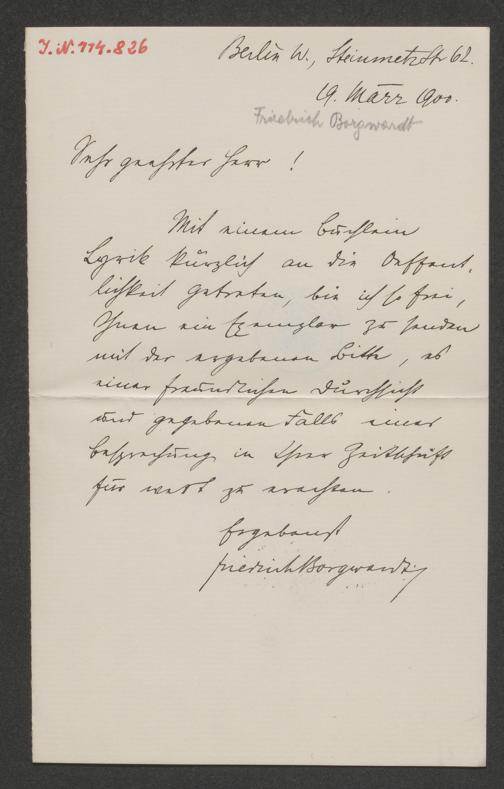 J.N. 114.826
Berlin W., Steinmetzstr 62.
19. März 900.
Friedrich Borgwardt
Sehr geehrter Herr !
Mit einem Büchlein
Lyrik kürzlich an die Oeffent-
lichkeit getreten, bin ich so frei,
Ihnen ein Exemplar zu senden
mit der ergebenen Bitte, es
einer freundlichen Durchsicht
und gegebenen Falls einer
Besprechung in Ihrer Zeitschrift
für wert zu erachten.
Ergebenst
Friedrich Borgwardt.